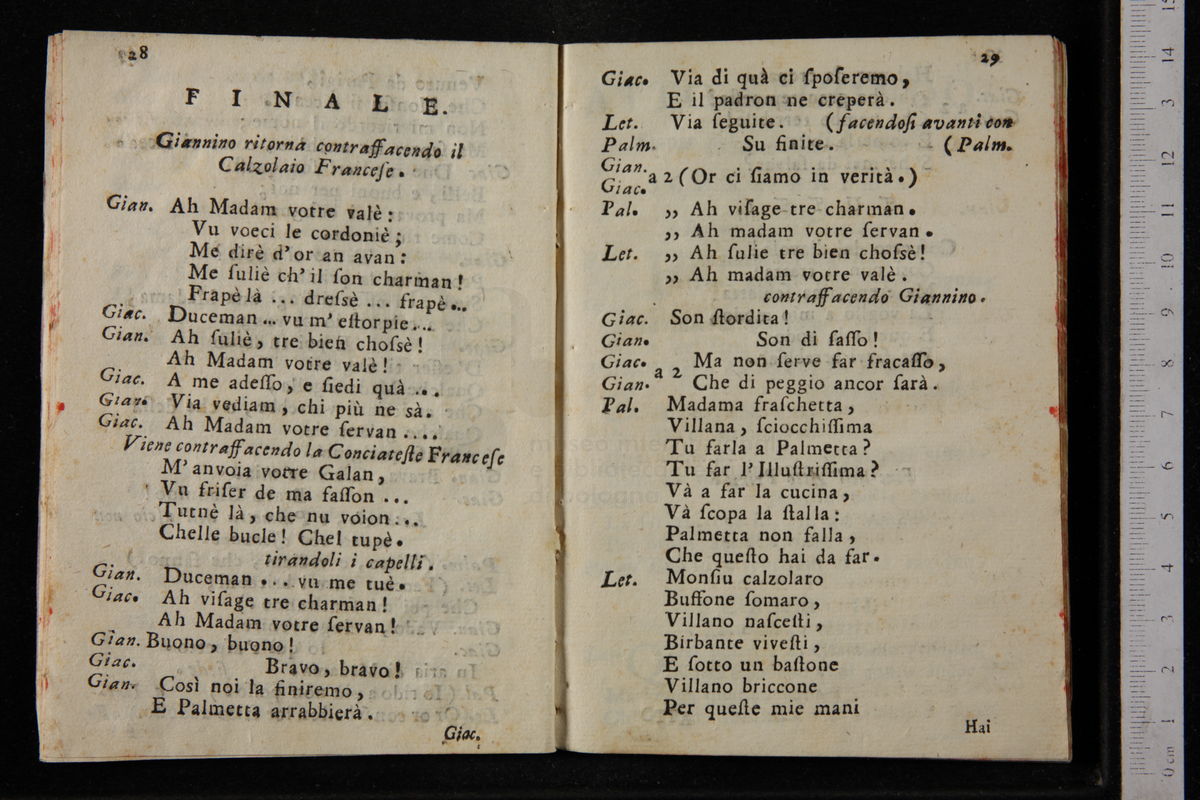 28
FINALE.
Giannino ritorna contraffacendo il
Calzolaio Franceſe.
Gian. Ah Madam votre valè:
Vu voeci le cordoniè;
Me dirè d'or an avan:
Me ſuliè ch'il ſon charman!
Frapè là ... dreſsè ... frapè...
Giac. Duceman ... vu m' eſtorpie...
Gian. Ah ſuliè, tre bien choſsè!
Ah Madam votre valè!
Giac. A me adeſſo, e ſiedi quà ...
Gian. Via vediam, chi più ne sà.
Giac. Ah Madam votre ſervan ....
Viene contraffacendo la Conciateſte Franceſe
M'anvoia votre Galan,
Vu friſer de ma faſſon ...
Tutnè là, che nu voion...
Chelle bucle! Chel tupè.
tirandoli i capelli.
Gian. Duceman ... vu me tuè.
Giac. Ah viſage tre charman!
Ah Madam votre ſervan!
Gian. Buono, buono!
Giac. Bravo, bravo!
Gian. Così noi la finiremo,
E Palmetta arrabbierà.
Giac.
29
Giac. Via di quà ci ſpoſeremo,
E il padron ne creperà.
Let. Via ſeguite. (facendoſi avanti con
Palm. Su finite. (Palm.
Gian.
Giac. a 2 (Or ci ſiamo in verità.)
Pal. ,, Ah viſage tre charman.
,, Ah madam votre ſervan.
Let. ,, Ah ſulie tre bien choſsè!
,, Ah madam votre valè.
contraffacendo Giannino.
Giac. Son ſtordita!
Gian. Son di ſaſſo!
Giac. a 2 Ma non ſerve far fracaſſo,
Gian. Che di peggio ancor ſarà.
Pal. Madama fraſchetta,
Villana, ſciocchiſſima
Tu farla a Palmetta?
Tu far l'Illuſtriſſima?
Và a far la cucina,
Và ſcopa la ſtalla:
Palmetta non falla,
Che queſto hai da far.
Let. Monſiu calzolaro
Buffone ſomaro,
Villano naſceſti,
Birbante viveſti,
E ſotto un baſtone
Villano briccone
Per queſte mie mani
Hai
0 cm 1 2 3 4 5 6 7 8 9 10 11 12 3 14 15